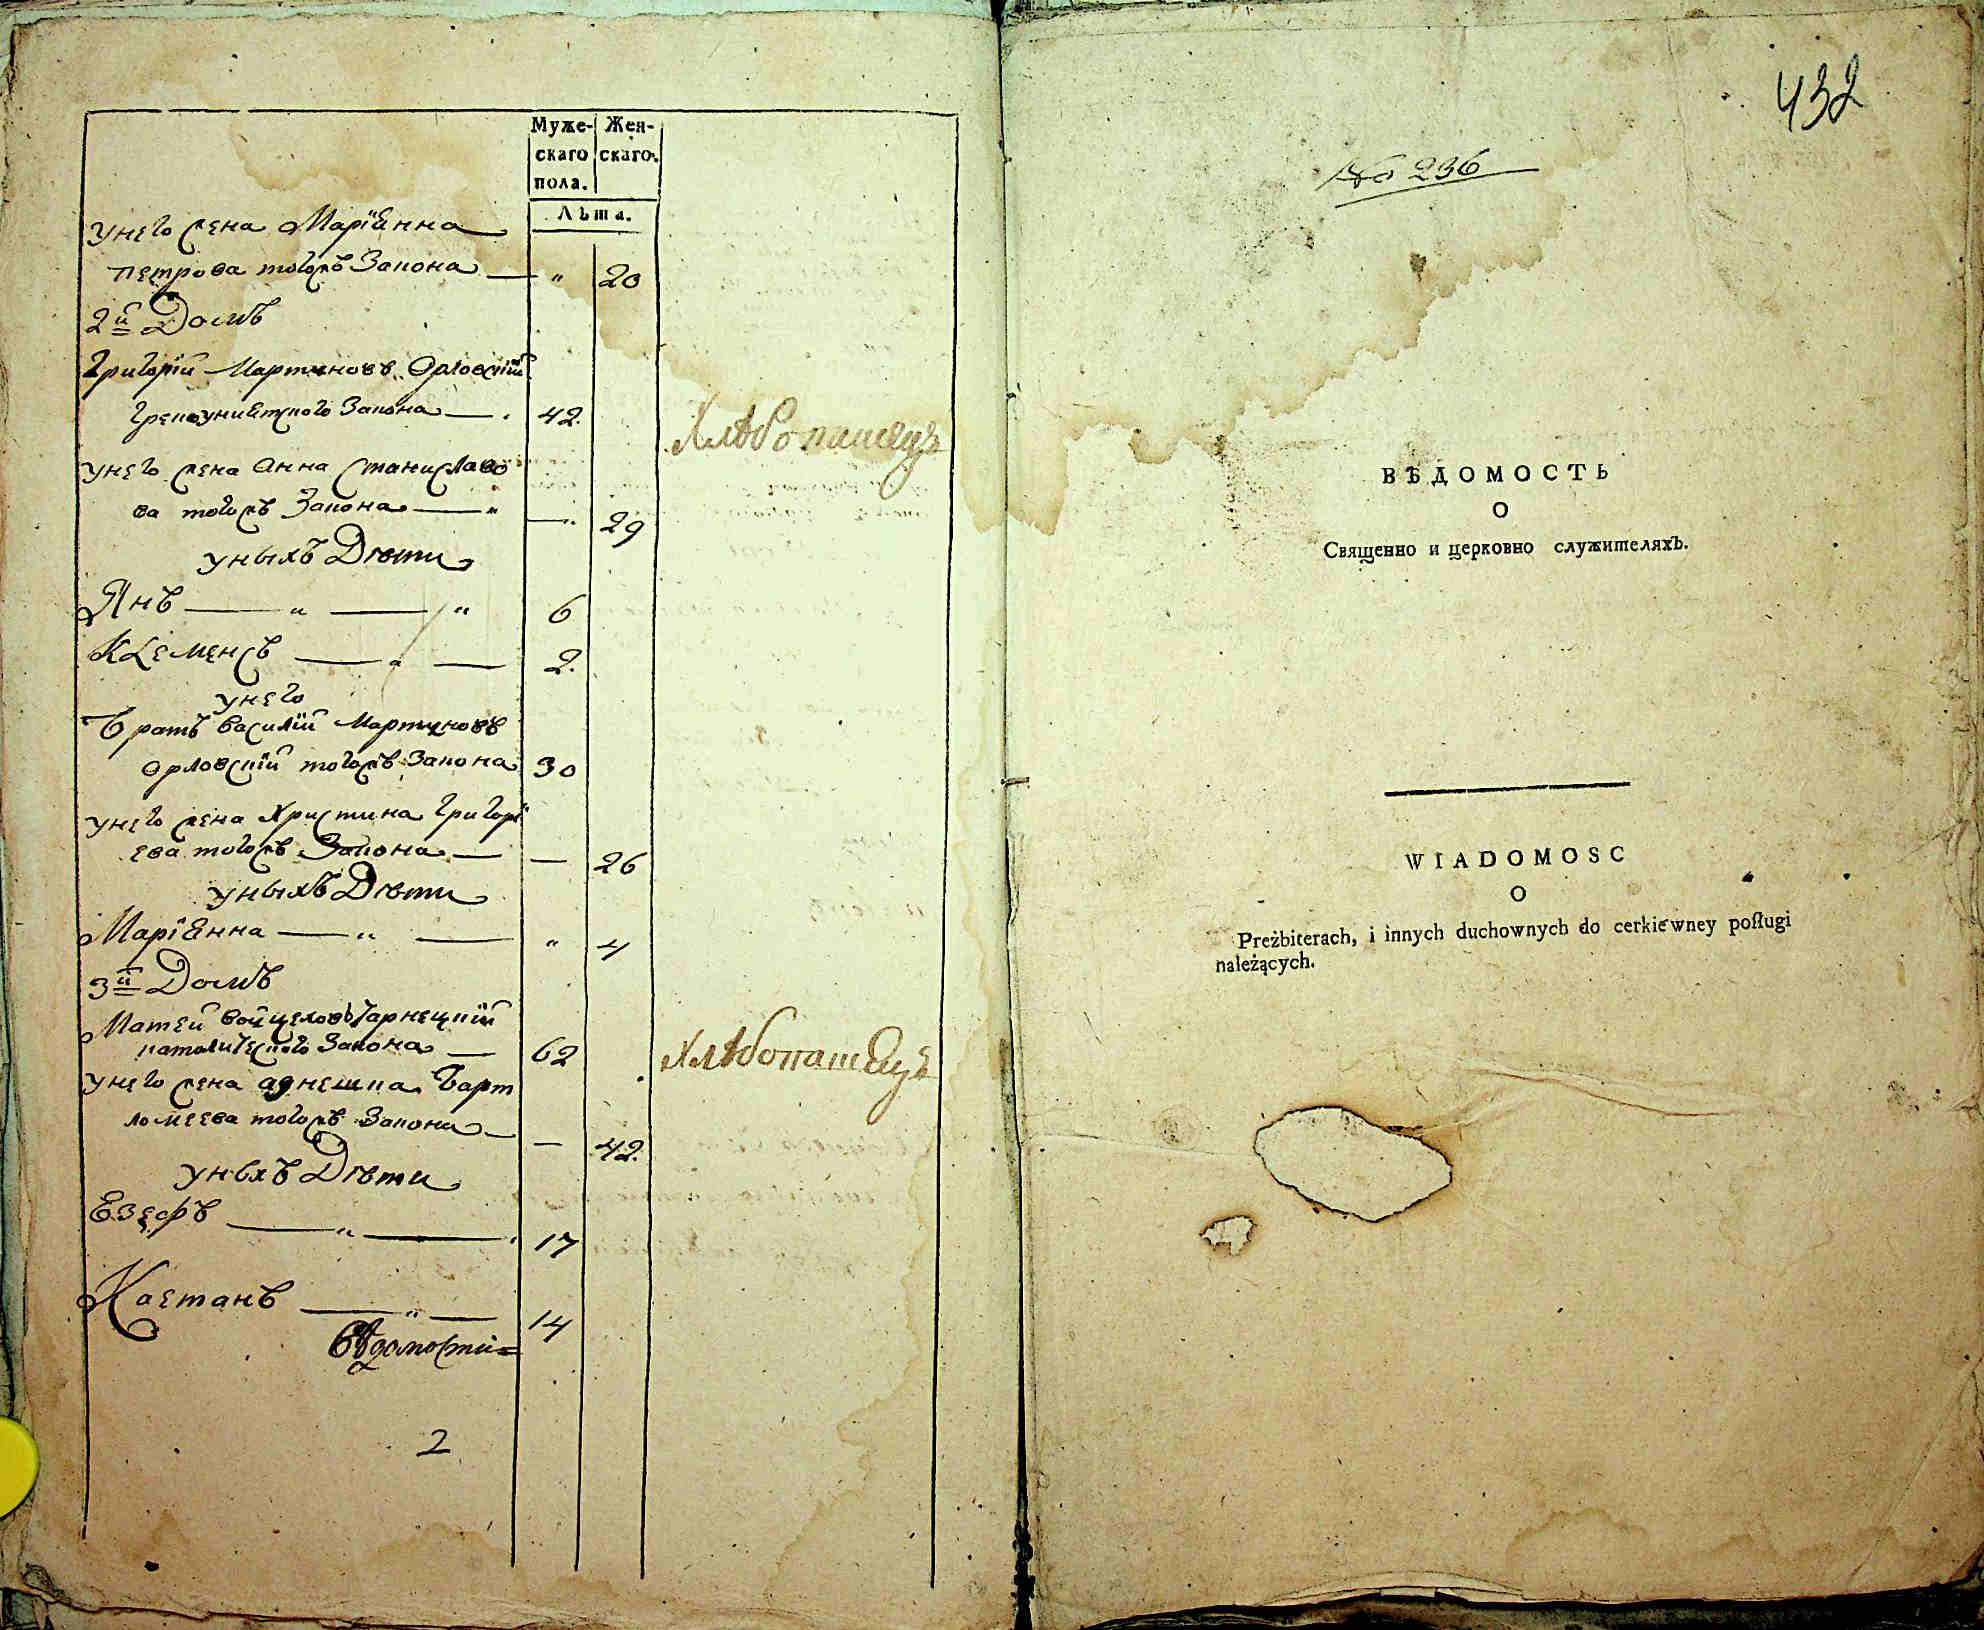 Муже-
скаго
пола.
Жен-
скаго.
Лѣта.
унего жена Маріанна
петрова тогожъ Закона — " 20
2й Домъ
Григорій Мартиновъ Орловскій
Грекоуниатского Закона — 42.
Хлѣбопашецъ
унего жена Анна Станиславо
ва тогожъ Закона — " — 29
уныхъ Дѣти
Янъ — " — " 6
Клеменсъ — " — 2.
унего
Братъ василій Мартиновъ
Орловскій тогожъ Закона 30
унего жена Христина Григорі
ева тогожъ Закона — — 26
уныхъ Дѣти
Маріанна — " — " 4
3й Домъ
Матей войцеховъ Чарнецкій
католического Закона — 62
Хлѣбопашецъ
унего жена агнешка Барт
ломеева тогожъ Закона — — 42.
уныхъ Дѣти
Езефъ — " — 17
Каетанъ — " — 14
Вѣдомости=
2
432
No 236
ВѢДОМОСТЬ
О
Священно и церковно служителяхъ.
WIADOMOSC
O
Preżbiterach, i innych duchownych do cerkiewney posługi
należących.